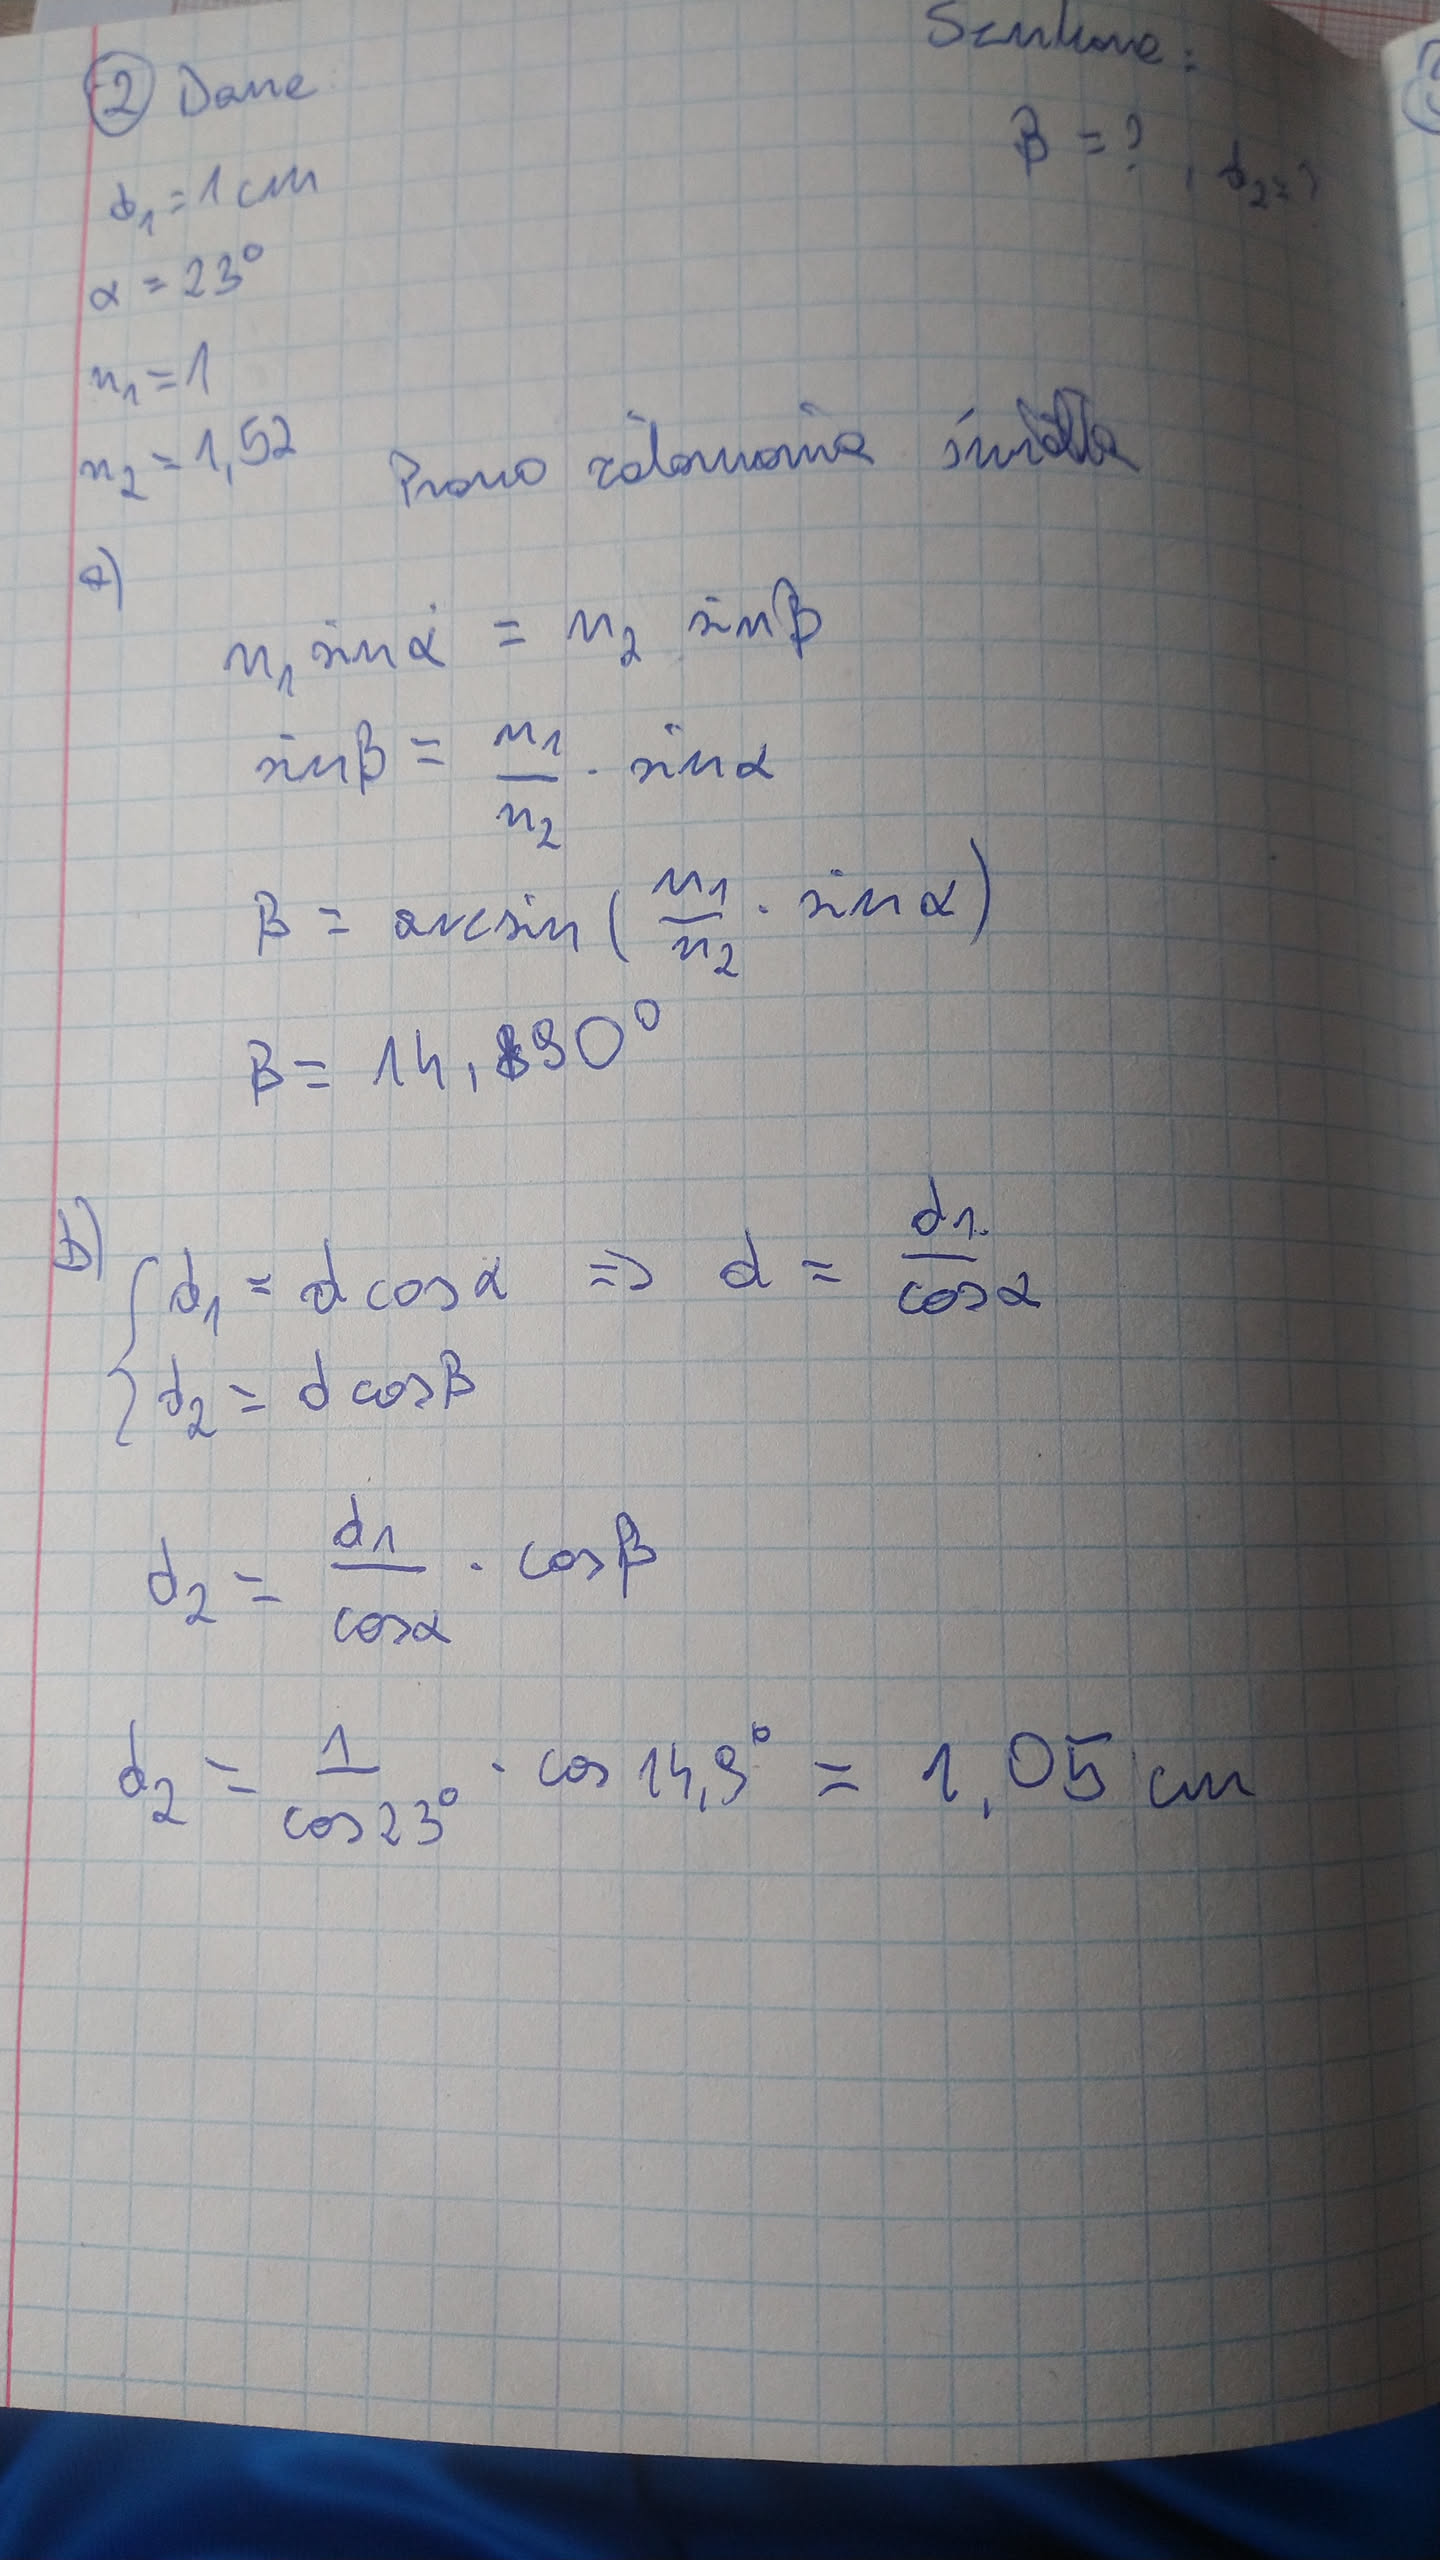 ② Dane
Szukane:
d₁ = 1 cm
β = ? , d₂ = ?
α = 23°
n₁ = 1
n₂ = 1,52
Prawo załamania światła
a)
n₁ sin α = n₂ sin β
sin β = n₁/n₂ · sin α
β = arcsin ( n₁/n₂ · sin α )
β = 14,890°
b)
{ d₁ = d cos α ⇒ d = d₁/cos α
d₂ = d cos β
d₂ = d₁/cos α · cos β
d₂ = 1/cos 23° · cos 14,9° = 1,05 cm